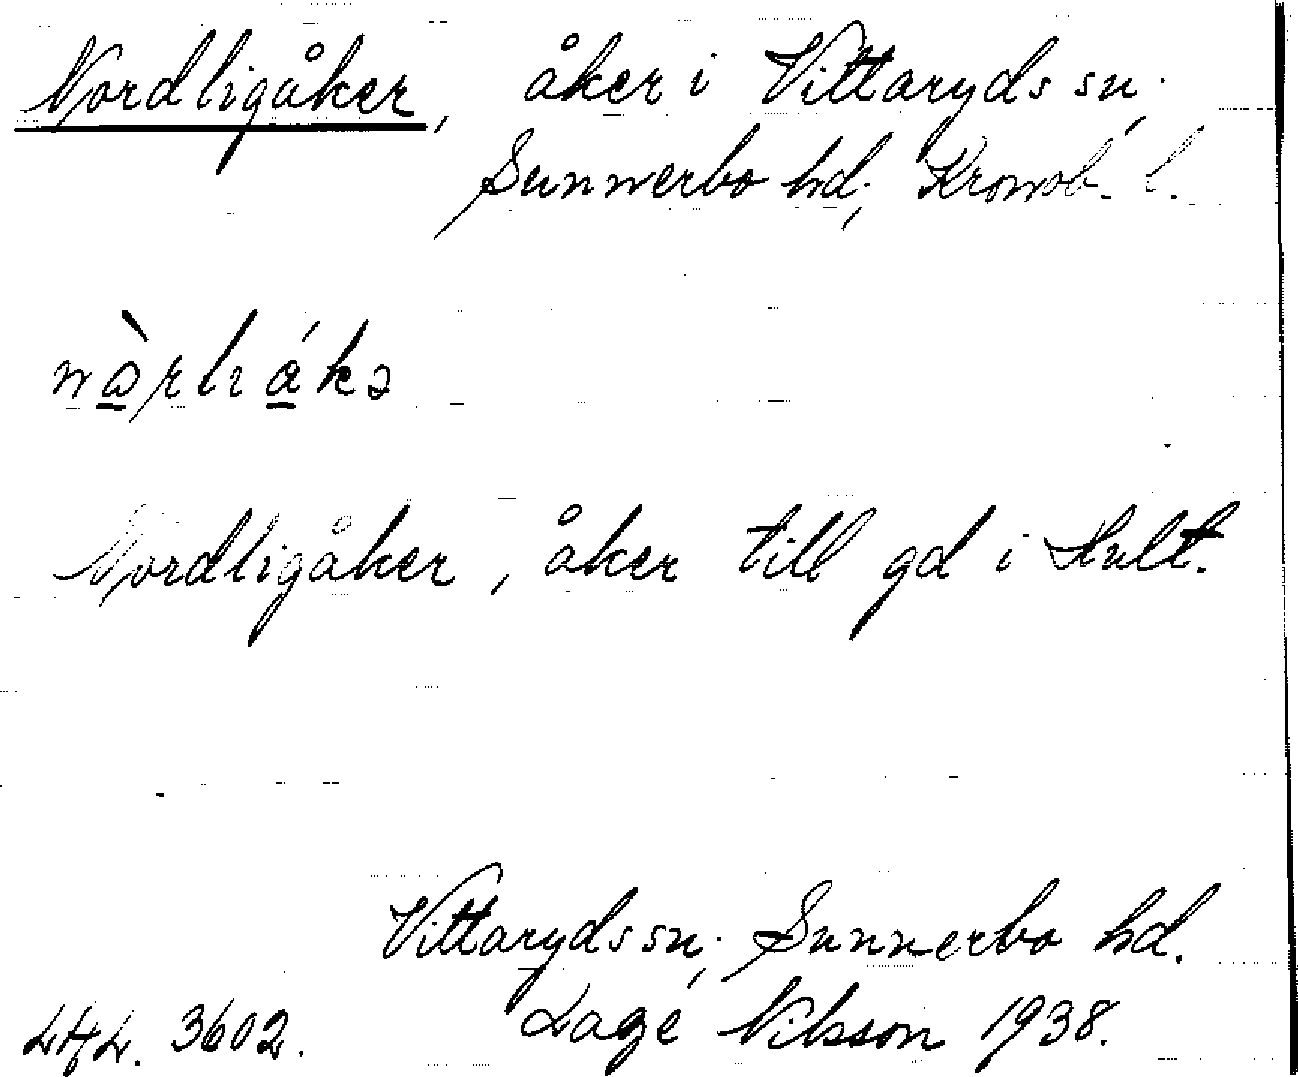 Nordligåker, åker i Vittaryds sn.,
Sunnerbo hd., Kronob. l.
nòrlıákə
Nordligåker, åker till gd i Hult.
Vittaryds sn., Sunnerbo hd.
Lage Nilsson 1938.
3602.